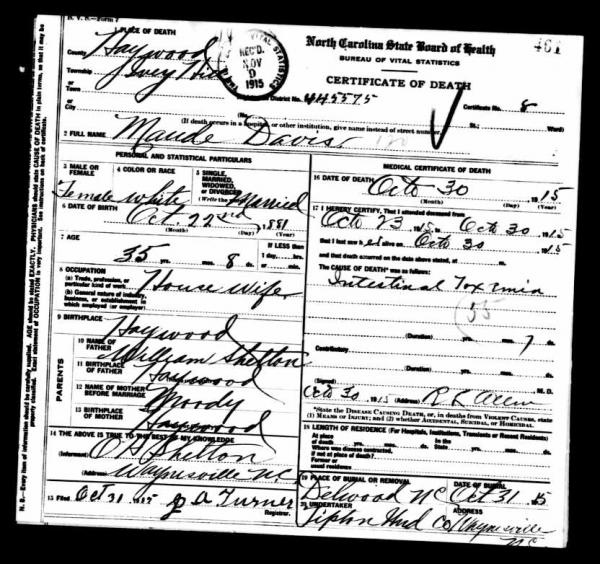 D. V. S.—Form 7
1 PLACE OF DEATH
County Haywood
Township Ivey Hill
or
Town
or
City
VITAL STATISTICS
REC'D.
NOV
1915
North Carolina State Board of Health
BUREAU OF VITAL STATISTICS
CERTIFICATE OF DEATH
461
Registration District No. 445575
Certificate No. 8
(No. St.; Ward)
(If death occurs in a hospital or other institution, give name instead of street number.)
2 FULL NAME Maude Davis
PERSONAL AND STATISTICAL PARTICULARS
3 MALE OR FEMALE Female
4 COLOR OR RACE White
5 SINGLE, MARRIED, WIDOWED, OR DIVORCED (Write the word) Married
6 DATE OF BIRTH Oct. 22nd, 1881
(Month) (Day) (Year)
7 AGE 35 yrs. mos. 8 ds.
IF LESS than 1 day, hrs. or min.
8 OCCUPATION House Wife
(a) Trade, profession, or particular kind of work
(b) General nature of industry, business, or establishment in which employed (or employer)
9 BIRTHPLACE Haywood
PARENTS
10 NAME OF FATHER William Shelton
11 BIRTHPLACE OF FATHER Haywood
12 NAME OF MOTHER BEFORE MARRIAGE Moody
13 BIRTHPLACE OF MOTHER Haywood
14 THE ABOVE IS TRUE TO THE BEST OF MY KNOWLEDGE
(Informant) Shelton
(Address) Waynesville N.C.
15 Filed Oct 31 1915 J A Turner
Registrar.
MEDICAL CERTIFICATE OF DEATH
16 DATE OF DEATH Octo 30 1915
(Month) (Day) (Year)
17 I HEREBY CERTIFY, That I attended deceased from
Octo 23 1915 to Octo 30 1915
that I last saw her alive on Octo 30 1915
and that death occurred on the date above stated, at m.
The CAUSE OF DEATH* was as follows:
Intestinal Toxemia
55
(Duration) yrs. mos. 7 ds.
Contributory
(Duration) yrs. mos. ds.
(Signed) M. D.
Octo 30 1915 (Address) R L Allen
*State the DISEASE CAUSING DEATH, or, in deaths from VIOLENT CAUSES, state
(1) MEANS OF INJURY; and (2) whether ACCIDENTAL, SUICIDAL, OR HOMICIDAL.
18 LENGTH OF RESIDENCE (For Hospitals, Institutions, Transients or Recent Residents)
At place of death
In the State
Where was disease contracted, if not at place of death?
Former or usual residence
19 PLACE OF BURIAL OR REMOVAL Delwood NC
DATE OF BURIAL Oct 31 15
20 UNDERTAKER
ADDRESS Waynesville NC
N. B.—Every item of information should be carefully supplied. AGE should be stated EXACTLY. PHYSICIANS should state CAUSE OF DEATH in plain terms, so that it may be
properly classified. Exact statement of OCCUPATION is very important. See instructions on back of certificate.